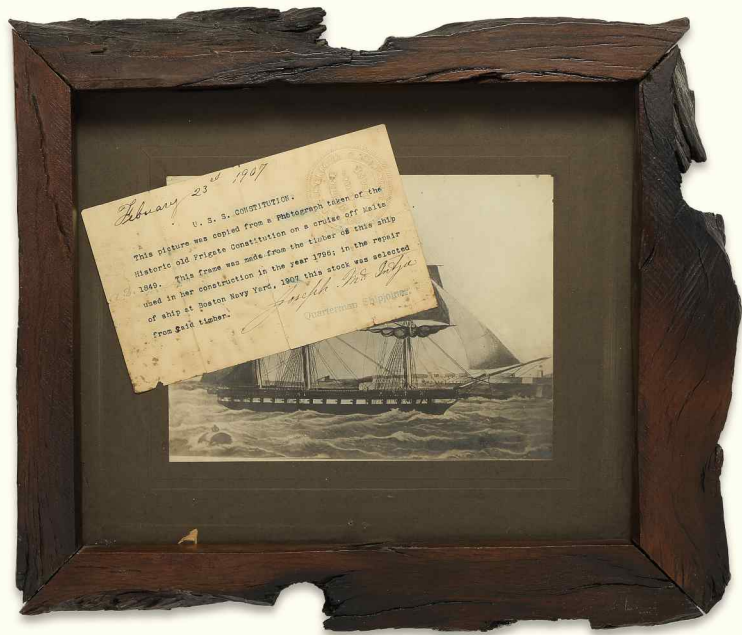 February 23rd 1907
U. S. S. CONSTITUTION.
This picture was copied from a Photograph taken of the
Historic old Frigate Constitution on a cruise off Malta
1849. This frame was made from the timber of this ship
used in her construction in the year 1796; in the repair
of ship at Boston Navy Yard, 1907 this stock was selected
from said timber.
Joseph
Quarterman Shipjoiner.